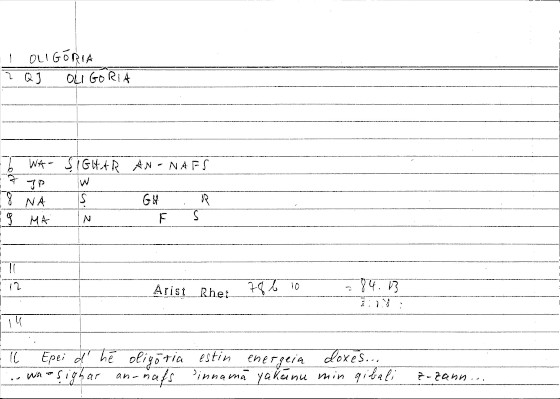 1 OLIGŌRIA
2 QJ OLIGŌRIA
6 WA- ṢIGHAR AN-NAFS
7 JP W
8 NA Ṣ GH R
9 MA N F S
11
12 Arist Rhet 78b 10 = 84.13
14
16 Epei d' hē oligōria estin energeia doxēs...
.. wa-ṣighar an-nafs 'innamā yakūnu min qibali ẓ-ẓann...